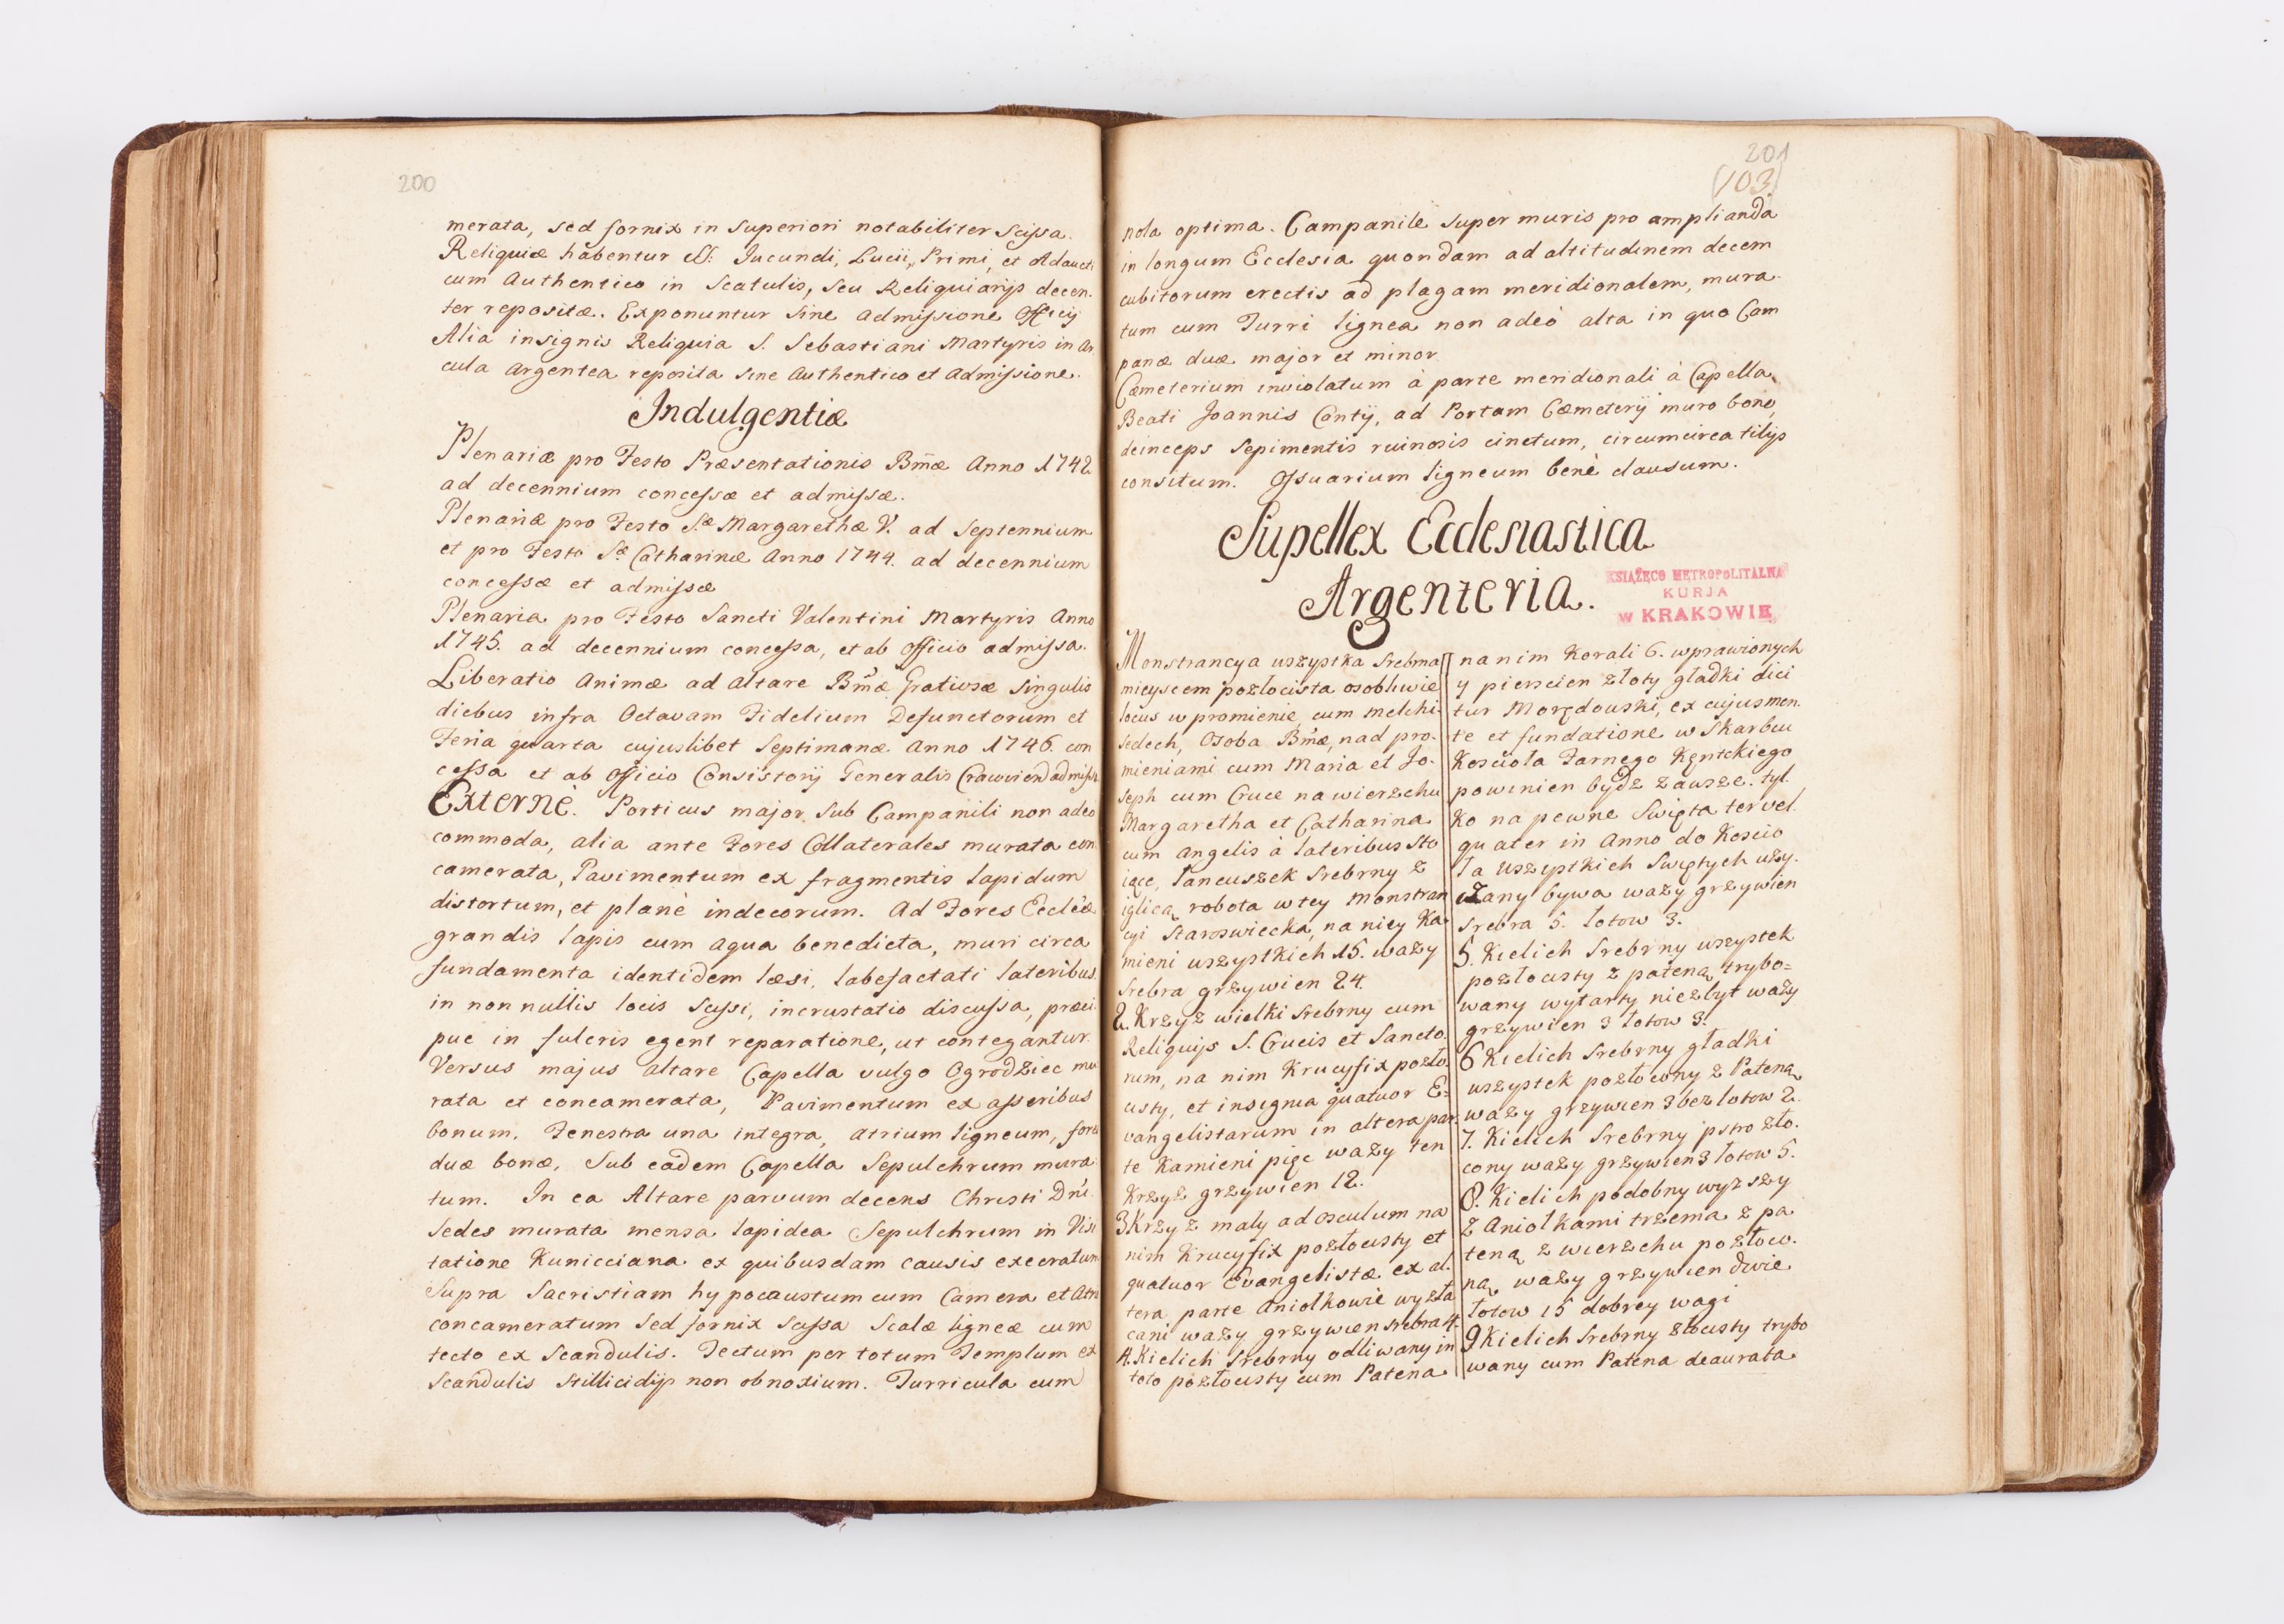 200
merata, sed fornix in superiori notabiliter scissa.
Reliquiæ habentur SS: Jucundi, Lucii, Primi, et Adaucti
cum Authentico in Scatulis, seu Reliquiarijs decen-
ter repositæ. Exponuntur sine admissione Officij
Alia insignis Reliquia S. Sebastiani Martyris in Ar
cula Argentea reposita sine Authentico et Admissione.
Indulgentiæ
Plenariæ pro Festo Præsentationis Bm̃æ Anno 1742
ad decennium concessæ et admissæ.
Plenariæ pro Festo S.æ Margarethæ V. ad Septennium
et pro Festo Sæ Catharinæ Anno 1744. ad decennium
concessæ et admissæ
Plenaria pro Festo Sancti Valentini Martyris Anno
1745. ad decennium concessa, et ab Officio admissa.
Liberatio Animæ ad Altare Bm̃æ Gratiosæ singulis
diebus infra Octavam Fidelium Defunctorum et
Feria quarta cujuslibet Septimanæ Anno 1746. con
cessa et ab Officio Consistorij Generalis Cracovien admissa
Externè. Porticus major sub Campanili non adeo
commoda, alia ante Fores Collaterales murata con
camerata, Pavimentum ex fragmentis lapidum
distortum, et planè indecorum. Ad Fores Ecclĕæ
grandis lapis cum aqua benedicta, muri circa
fundamenta identidem læsi, labefactati lateribus
in non nullis locis scissi, incrustatio discussa, præci
pue in fulcris egent reparatione, ut contegantur.
Versus majus altare Capella vulgo Ogrodziec mu
rata et concamerata, Pavimentum ex asseribus
bonum. Fenestra una integra, atrium ligneum, fores
duæ bonæ. Sub eadem Capella Sepulchrum mura
tum. In ea Altare parvum decens Christi Dńi.
Sedes murata mensa lapidea Sepulchrum in Visi
tatione Kunicciana ex quibusdam causis execratum
Supra Sacristiam hypocaustum cum Camera et Atrio
concameratum sed fornix scissa Scalæ ligneæ cum
tecto ex Scandulis. Tectum per totum Templum ex
Scandulis stillicidijs non obnoxium. Turricula cum
201
(103)
nola optima. Campanile super muris pro amplianda
in longum Ecclesia quondam ad altitudinem decem
cubitorum erectis ad plagam meridionalem, mura-
tum cum Turri lignea non adeò alta in quo Cam
panæ duæ major et minor.
Cæmeterium inviolatum à parte meridionali à Capella
Beati Joannis Contij, ad Portam Cæmeterij muro bono,
deinceps sepimentis ruinosis cinctum, circumcirca tilijs
consitum. Ossuarium ligneum benè clausum.
Supellex Ecclesiastica
Argenteria.
KSIĄŻĘCO METROPOLITALNA
KURJA
W KRAKOWIE
Monstrancya wszystka srebrna
mieyscem pozłocista osobliwie
locus w promienie, cum Melchi-
sedech, Osoba Bm̃æ, nad pro-
mieniami cum Maria et Jo-
seph cum Cruce na wierzchu
Margaretha et Catharina
cum Angelis à lateribus sto
iące, łancuszek srebrny z
iglicą robota w tey Monstran
cyi staroswiecka, na niey Ka-
mieni wszystkich 15. waży
Srebra grzywien 24.
2. Krzyż wielki srebrny cum
Reliquijs S. Crucis et Sancto-
rum, na nim Krucyfix pozło-
cisty, et insignia quatuor E-
vangelistarum in altera par-
te Kamieni pięc waży ten
Krzyż grzywien 12.
3 Krzyz maly ad osculum na
nim Krucyfix pozłocisty et
quatuor Evangelistæ ex al-
tera parte Aniołkowie wyzła
cani waży grzywien srebra 4.
4. Kielich srebrny odliwany in
toto pozłocisty cum Patena
na nim Korali 6. wprawionych
y pierscien złoty gładki dici
tur Morędowski, ex cujus men-
te et fundatione w Skarbcu
Kosciola Farnego Kentckiego
powinien bydz zawsze, tyl-
ko na pewne Swięta ter vel
quater in Anno do Koscio
ła Wszystkich Swiętych uży-
czany bywa waży grzywien
srebra 5. łotow 3.
5. Kielich srebrny wszystek
pozłocisty z pateną trybo-
wany wytarty niezbyt waży
grzywien 3 łotow 3.
6 Kielich srebrny gładki
wszystek pozłocony z Pateną
waży grzywien 3 bez łotow 2.
7. Kielich srebrny pstro zło-
cony waży grzywien 3 łotow 5.
8. Kielich podobny wyzszy
z Aniołkami trzema z pa
teną z wierzchu pozłoco-
ną waży grzywien dwie
łotow 15 dobrey wagi
9 Kielich srebrny złocisty trybo
wany cum Patena deaurata